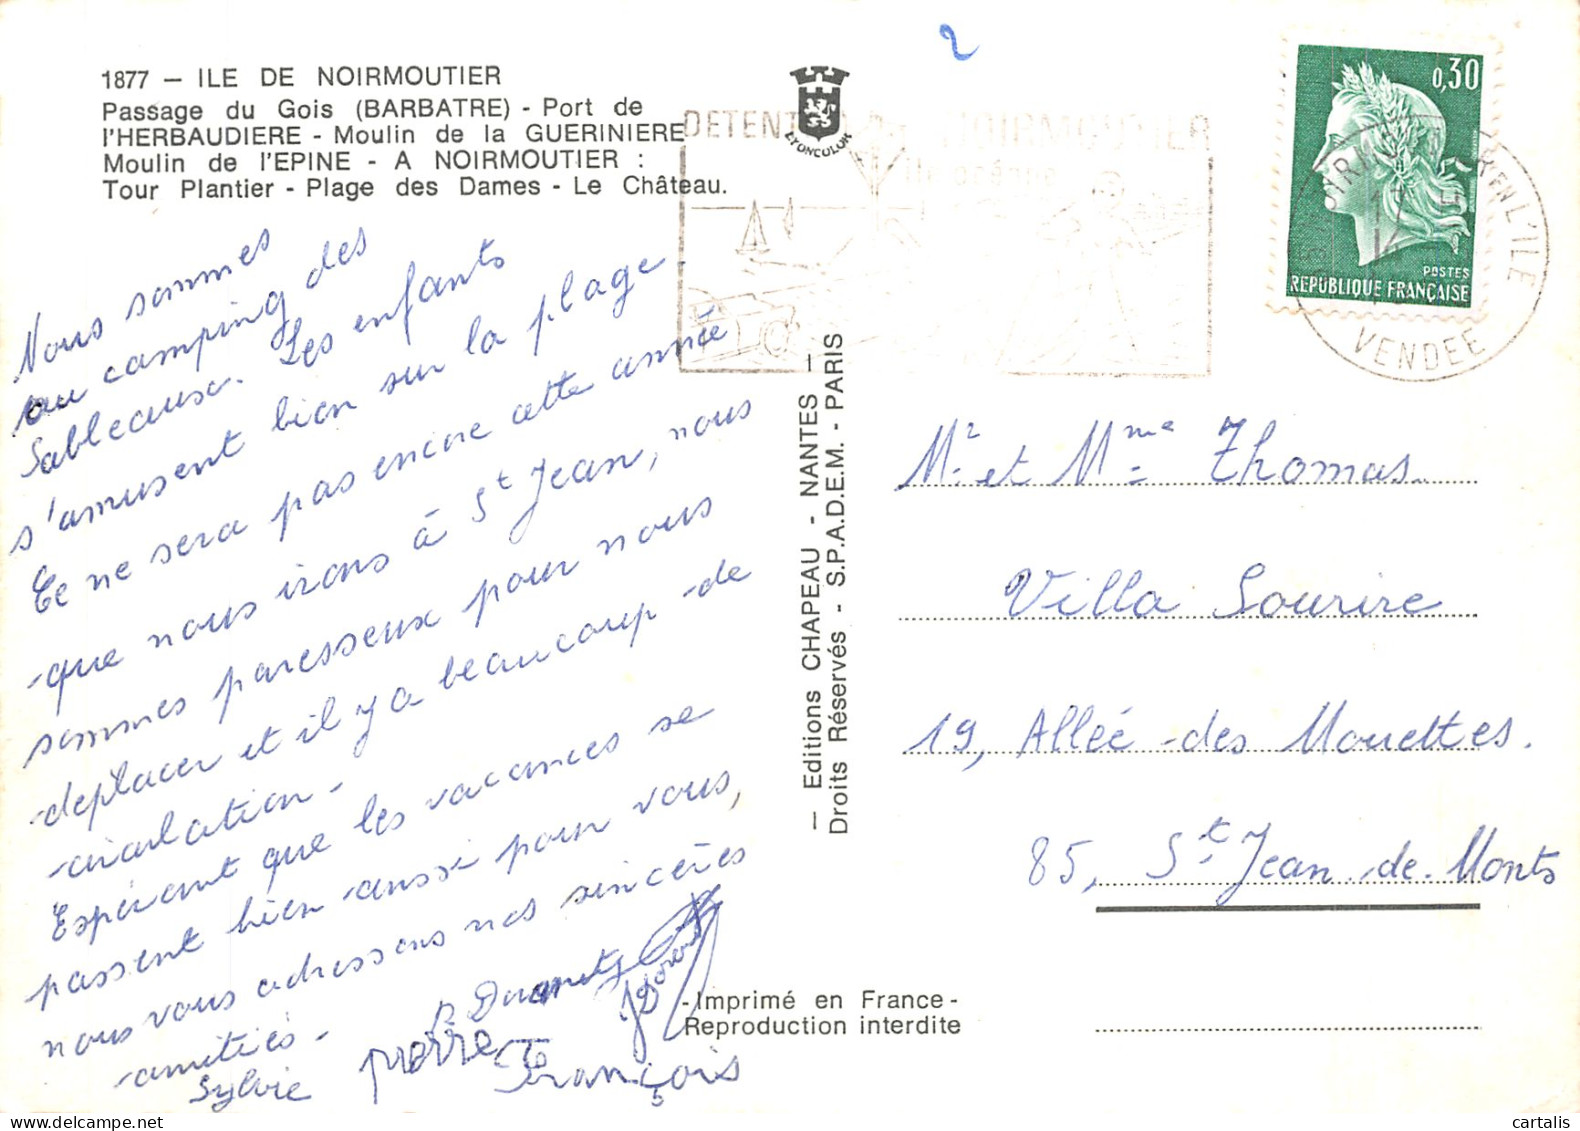 2
1877 — ILE DE NOIRMOUTIER
Passage du Gois (BARBATRE) - Port de
l'HERBAUDIERE - Moulin de la GUERINIERE
Moulin de l'EPINE - A NOIRMOUTIER :
Tour Plantier - Plage des Dames - Le Château.
LYONCOLOR
NOIRMOUTIER
0,30
POSTES
REPUBLIQUE FRANÇAISE
EN L'ILE
VENDEE
Nous sommes
au camping des
Sableaux. Les enfants
s'amusent bien sur la plage.
Ce ne sera pas encore cette année
que nous irons à St Jean, nous
sommes paresseux pour nous
deplacer et il y a beaucoup de
circulation -
Espérant que les vacances se
passent bien aussi pour vous,
nous vous adressons nos sincères
amitiés -
Sylvie Pierre
François
— Editions CHAPEAU - NANTES —
Droits Réservés - S.P.A.D.E.M. - PARIS
- Imprimé en France -
Reproduction interdite
Mr et Mme Thomas.
Villa Sourire
19, Allée des Mouettes.
85, St Jean de Monts
cartalis